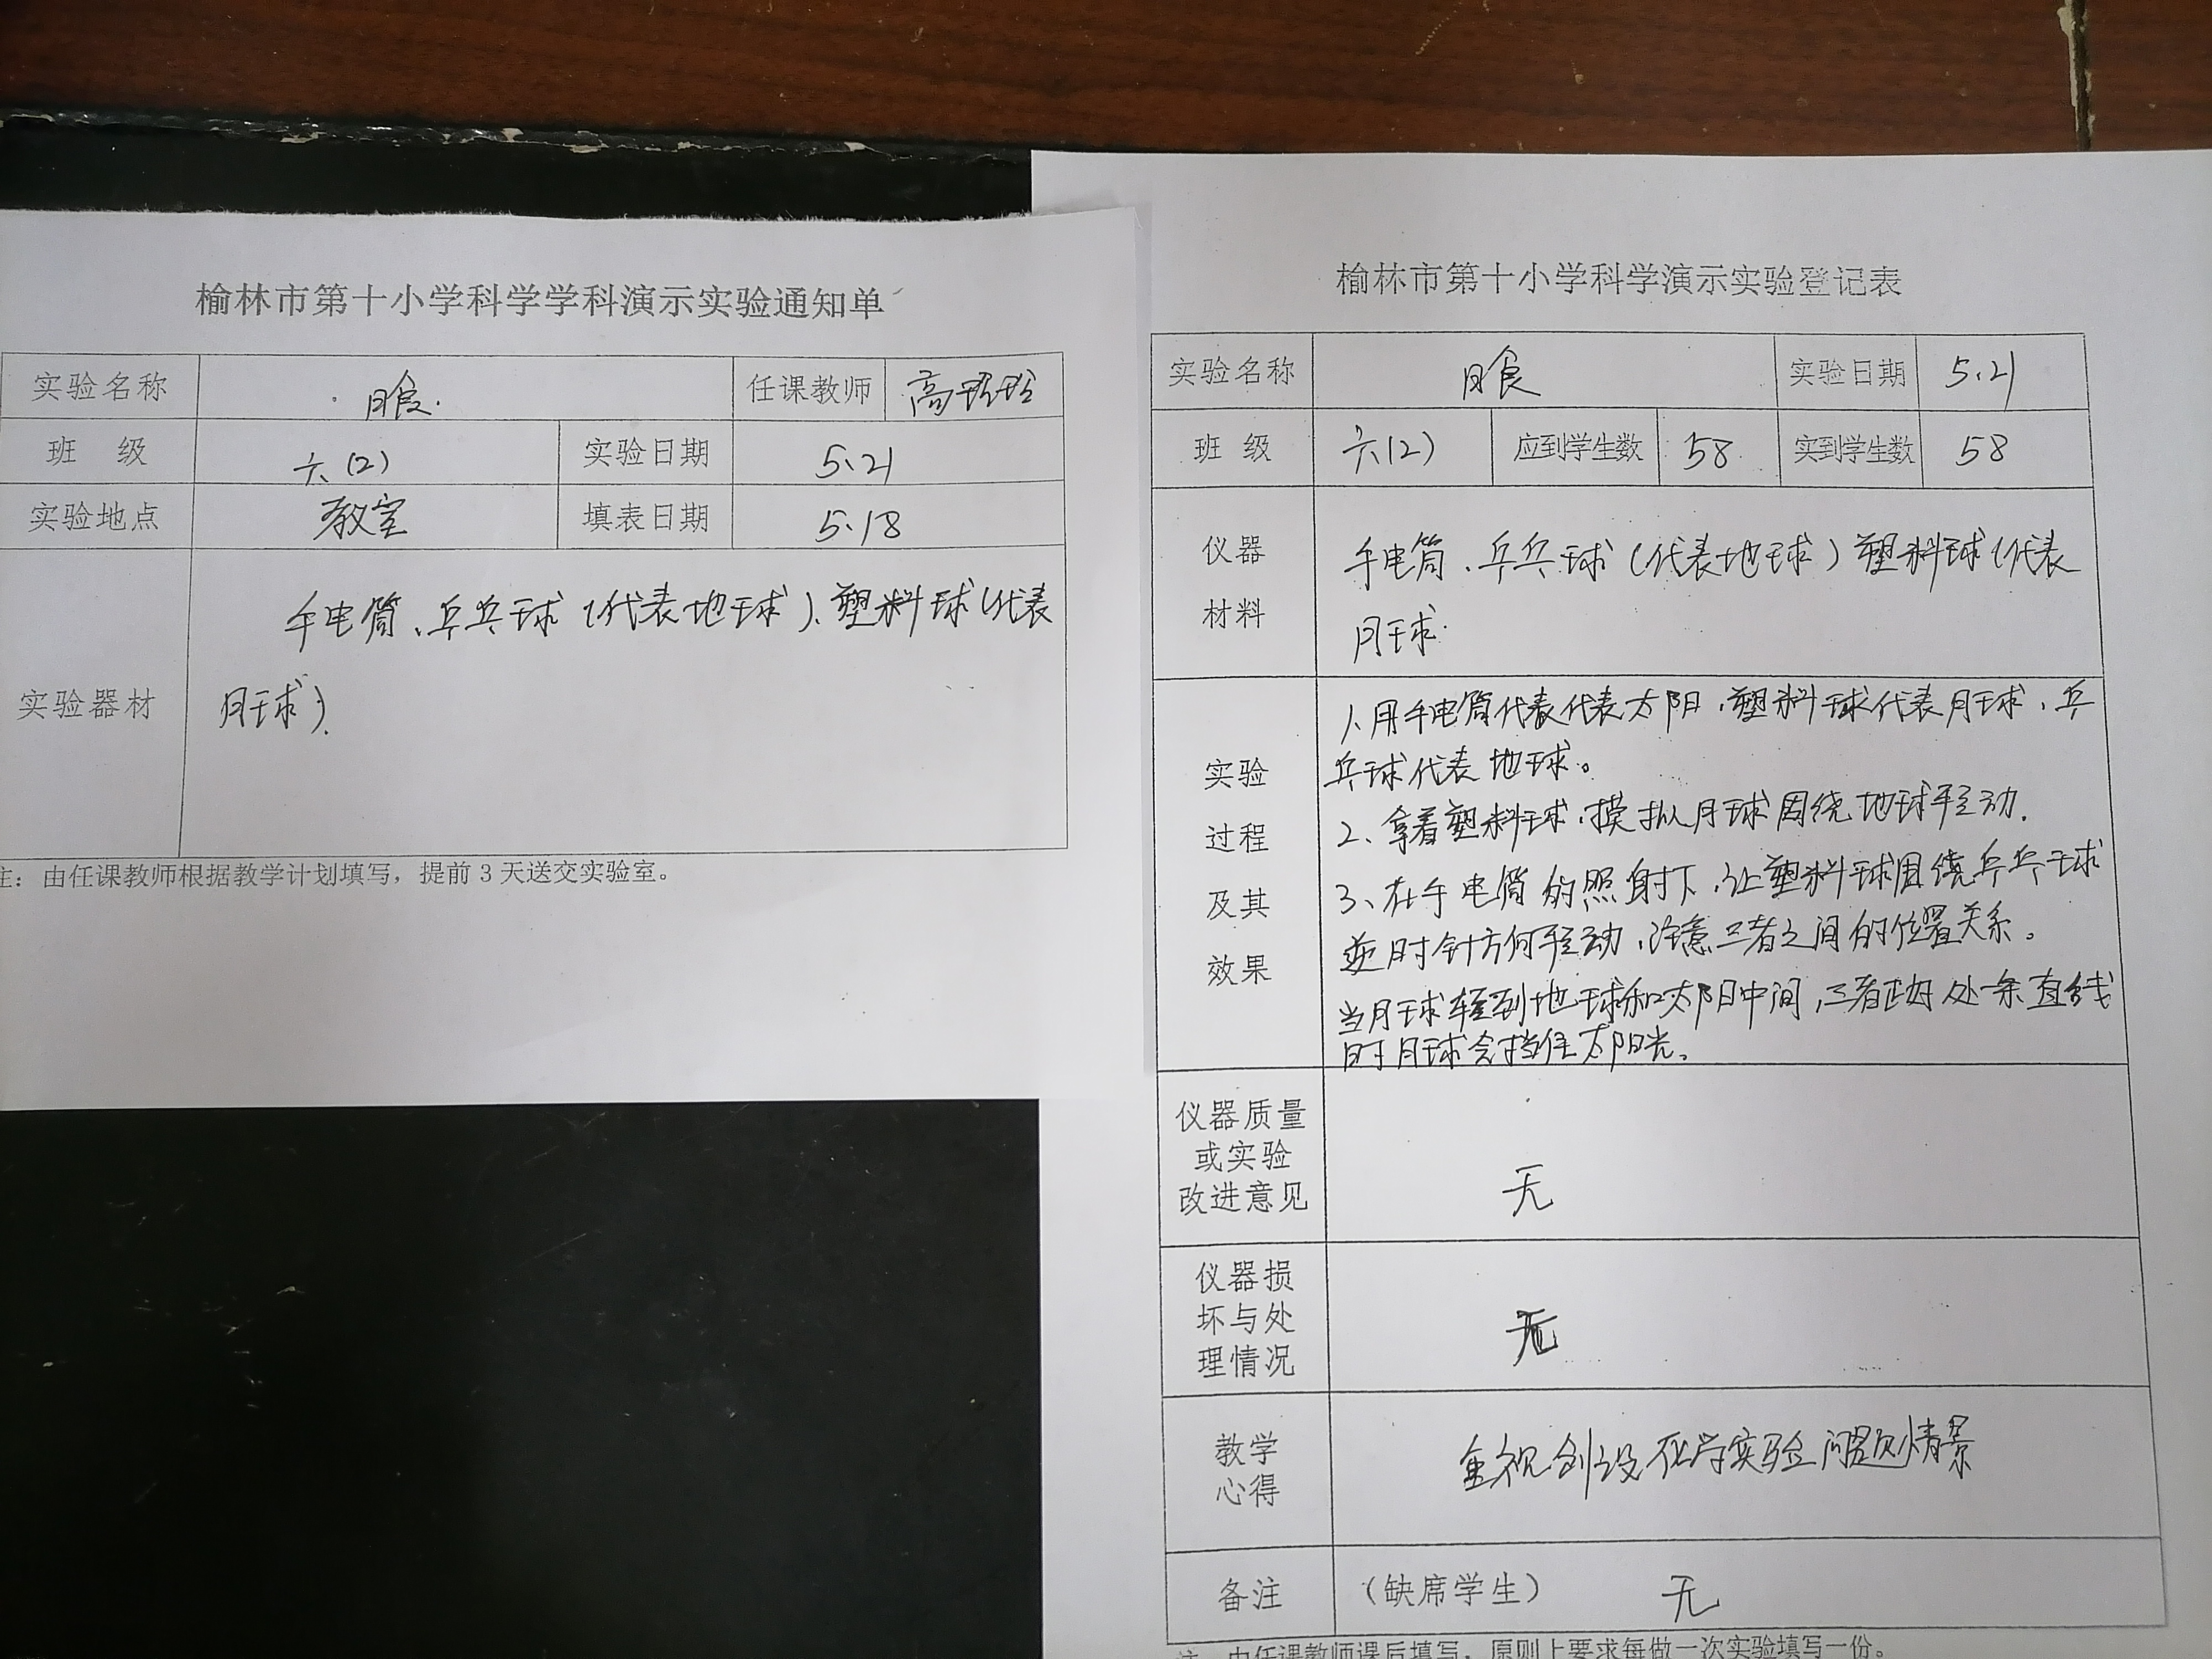 榆林市第十小学科学学科演示实验通知单
实验名称 日食. 任课教师
班 级 六(2) 实验日期 5.21
实验地点 教室 填表日期 5.18
实验器材
手电筒、乒乓球(代表地球)、塑料球(代表
月球).
注：由任课教师根据教学计划填写，提前3天送交实验室。
榆林市第十小学科学演示实验登记表
实验名称 日食 实验日期 5.21
班 级 六(2) 应到学生数 58 实到学生数 58
仪器
材料
手电筒、乒乓球(代表地球)塑料球(代表
月球.
实验
过程
及其
效果
1、用手电筒代表代表太阳,塑料球代表月球,乒
乓球代表地球。
2、拿着塑料球,模拟月球围绕地球转动.
3、在手电筒的照射下,让塑料球围绕乒乓球
逆时针方向转动,注意三者之间的位置关系。
当月球转到地球和太阳中间,三者正好处一条直线
时月球会挡住太阳光。
仪器质量
或实验
改进意见
无
仪器损
坏与处
理情况
无
教学
心得
重视创设化学实验问题情景
备注 (缺席学生) 无
注：由任课教师课后填写，原则上要求每做一次实验填写一份。